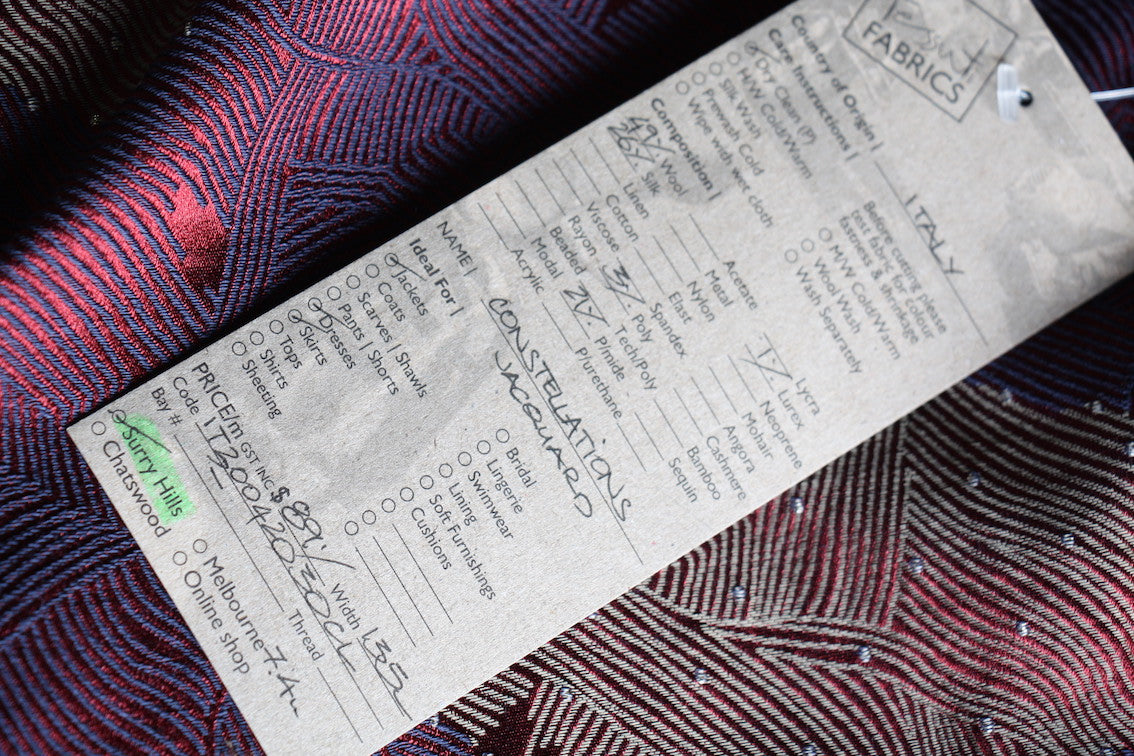 Tessuti
FABRICS
Country of Origin | ITALY
Care Instructions |
Dry Clean (P)
H/W Cold/Warm
Silk Wash
Prewash Cold
Wipe with wet cloth
Before cutting please
test fabric for colour
fastness & shrinkage
M/W Cold/Warm
Wool Wash
Wash Separately
Composition |
49% Wool
26% Silk
Linen
Cotton
Viscose
Rayon
Beaded
Modal
Acrylic
Acetate
Metal
Nylon
Elast
Spandex
3% Poly
Tech/Poly
21% P/mide
P/urethane
Lycra
1% Lurex
Neoprene
Mohair
Angora
Cashmere
Bamboo
Sequin
NAME | CONSTELLATIONS
JACQUARD
Ideal For |
Jackets
Coats
Scarves | Shawls
Pants | Shorts
Dresses
Skirts
Tops
Shirts
Sheeting
Bridal
Lingerie
Swimwear
Lining
Soft Furnishings
Cushions
PRICE/m GST INC $89/ Width 135
Code IT30042030CK
Bay # Thread
Surry Hills
Chatswood
Melbourne 7.4m
Online shop